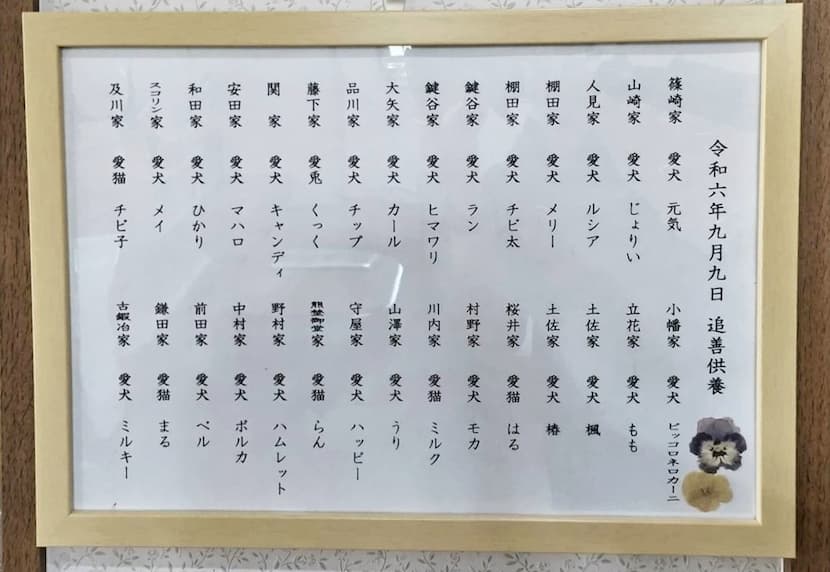 令和六年九月九日 追善供養
篠崎家 愛犬 元気
山崎家 愛犬 じょりい
人見家 愛犬 ルシア
棚田家 愛犬 メリー
棚田家 愛犬 チビ太
鍵谷家 愛犬 ラン
鍵谷家 愛犬 ヒマワリ
大矢家 愛犬 カール
品川家 愛犬 チップ
藤下家 愛兎 くっく
関 家 愛犬 キャンディ
安田家 愛犬 マハロ
和田家 愛犬 ひかり
スコリン家 愛犬 メイ
及川家 愛猫 チビ子
小幡家 愛犬 ピッコロネロカーニ
立花家 愛犬 もも
土佐家 愛犬 楓
土佐家 愛犬 椿
桜井家 愛猫 はる
村野家 愛犬 モカ
川内家 愛猫 ミルク
山澤家 愛犬 うり
守屋家 愛犬 ハッピー
熊埜御堂家 愛猫 らん
野村家 愛犬 ハムレット
中村家 愛犬 ポルカ
前田家 愛犬 ベル
鎌田家 愛猫 まる
古鍛冶家 愛犬 ミルキー